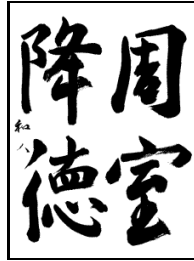 周室
降德
和八